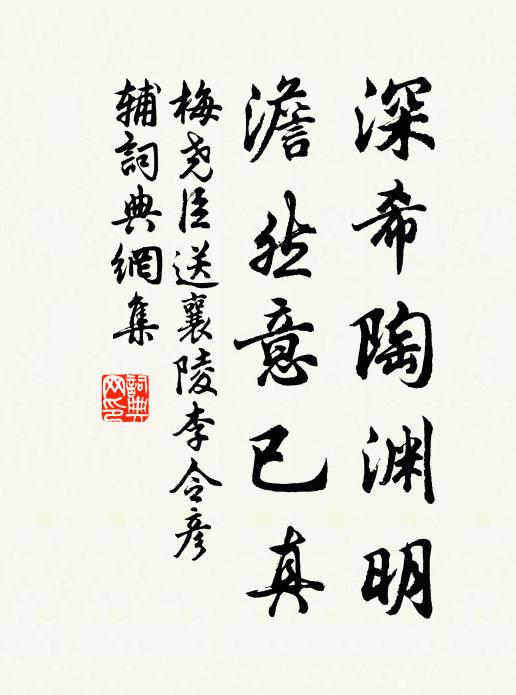 深希陶渊明
澹然意已真
梅尧臣送襄陵李令彦
辅詞典網集
詞典网印